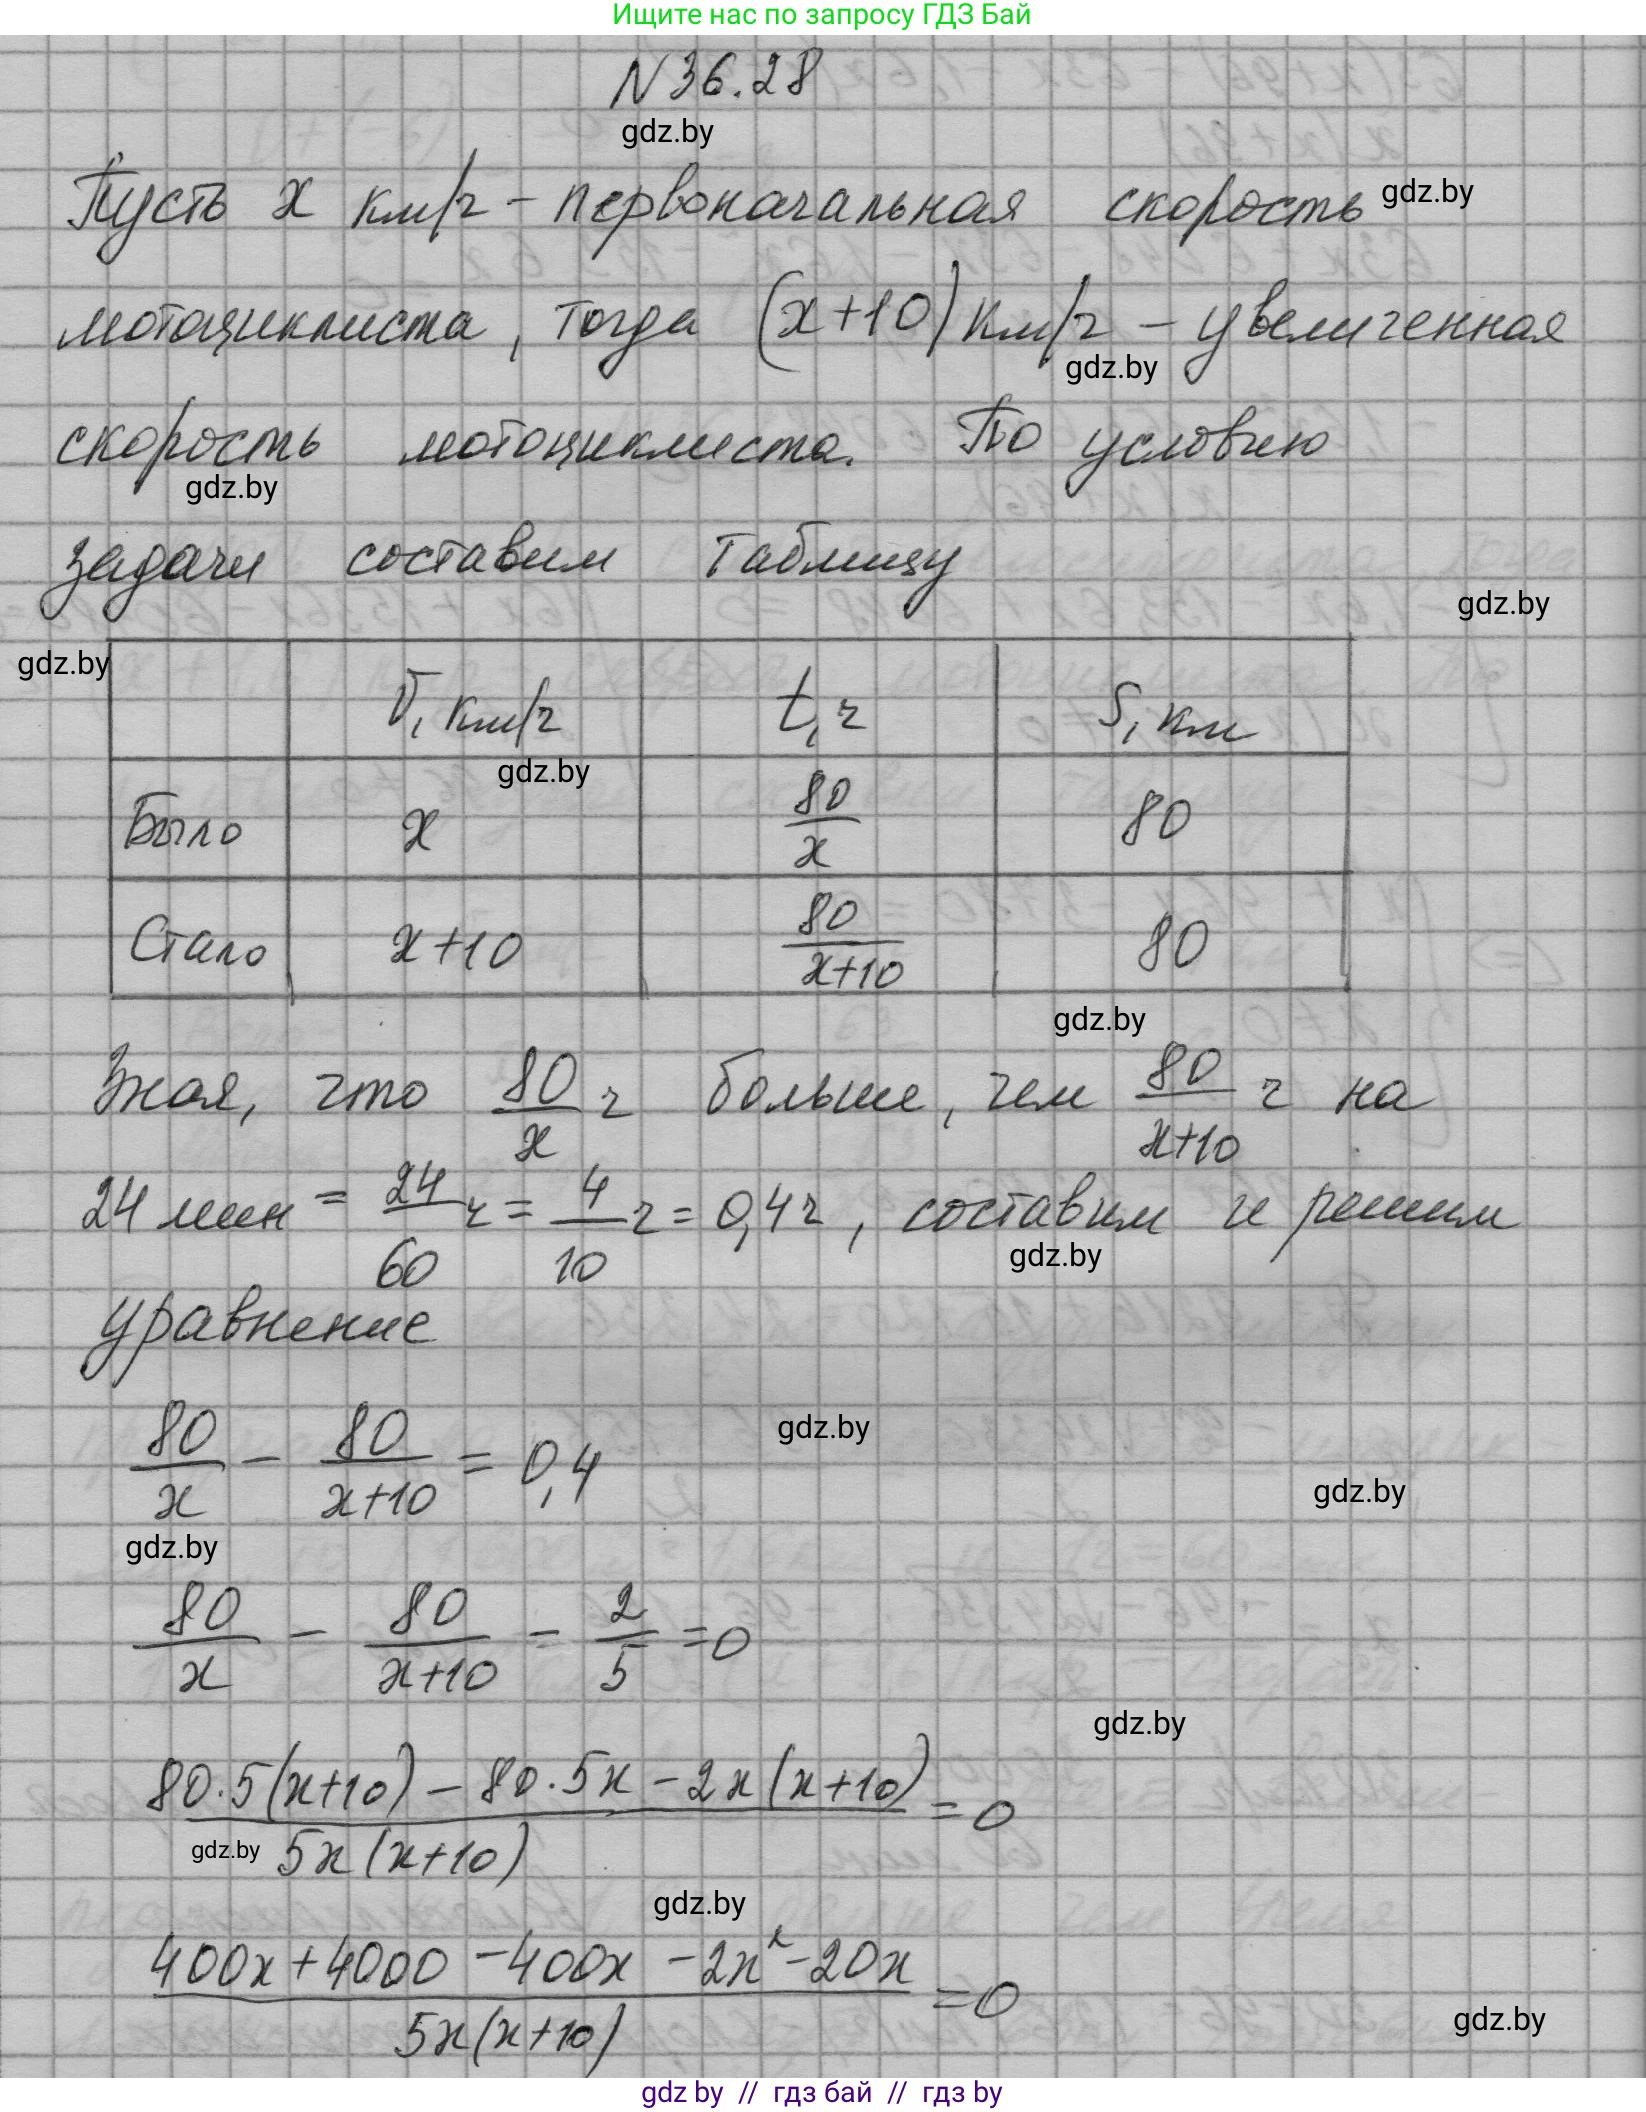 Ищите нас по запросу ГДЗ Бай
N 36.28
gdz.by
Пусть x км/ч – первоначальная скорость gdz.by
мотоциклиста, тогда (x+10) км/ч – увеличенная
gdz.by
скорость мотоциклиста. По условию
gdz.by
задачи составим таблицу
gdz.by
gdz.by
V, км/ч t, ч S, км
gdz.by
Было x 80/x 80
Стало x+10 80/(x+10) 80
gdz.by
Зная, что 80/x ч больше, чем 80/(x+10) ч на
24 мин = 24/60 ч = 4/10 ч = 0,4 ч, составим и решим
gdz.by
уравнение
80/x – 80/(x+10) = 0,4
gdz.by
gdz.by
gdz.by
80/x – 80/(x+10) – 2/5 = 0
gdz.by
(80·5(x+10) – 80·5x – 2x(x+10))/(5x(x+10)) = 0
gdz.by
gdz.by
(400x + 4000 – 400x – 2x² – 20x)/(5x(x+10)) = 0
gdz.by
gdz by // гдз бай // гдз by